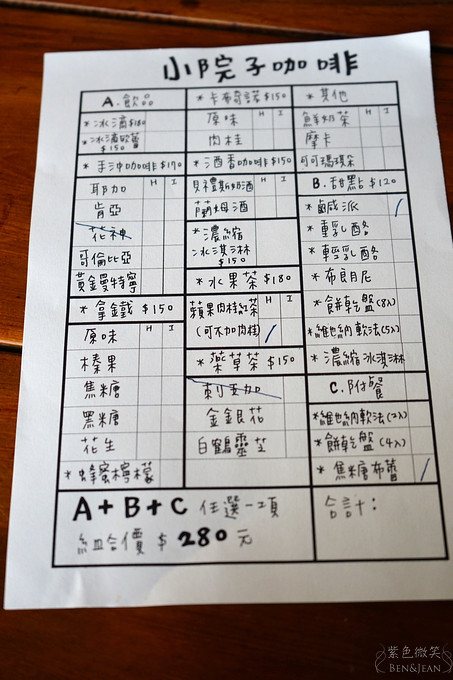 小院子咖啡
A.飲品
*冰滴$180
*冰滴歐蕾
$150
*手沖咖啡$170
H I
耶加
肯亞
花神
哥倫比亞
黃金曼特寧
*拿鐵 $150
原味 H I
榛果
焦糖
黑糖
花生
*蜂蜜檸檬
*卡布奇諾$150
原味 H I
肉桂
*酒香咖啡$150
貝禮斯奶酒 H I
蘭姆酒
*濃縮
冰淇淋
$150
*水果茶$180
蘋果肉桂紅茶 H I
(可不加肉桂)
*藥草茶$150
刺五加
金銀花
白鶴靈芝
*其他
鮮奶茶 H I
摩卡
可可瑪琪朵
B.甜點$120
*鹹派
*重乳酪
*輕乳酪
*布朗尼
*餅乾盤(8入)
*維也納軟法(5入)
*濃縮冰淇淋
C.附餐
*維也納軟法(2入)
*餅乾盤(4入)
*焦糖布蕾
A+B+C 任選一項
組合價$280元
合計:
紫色微笑
BEN&JEAN